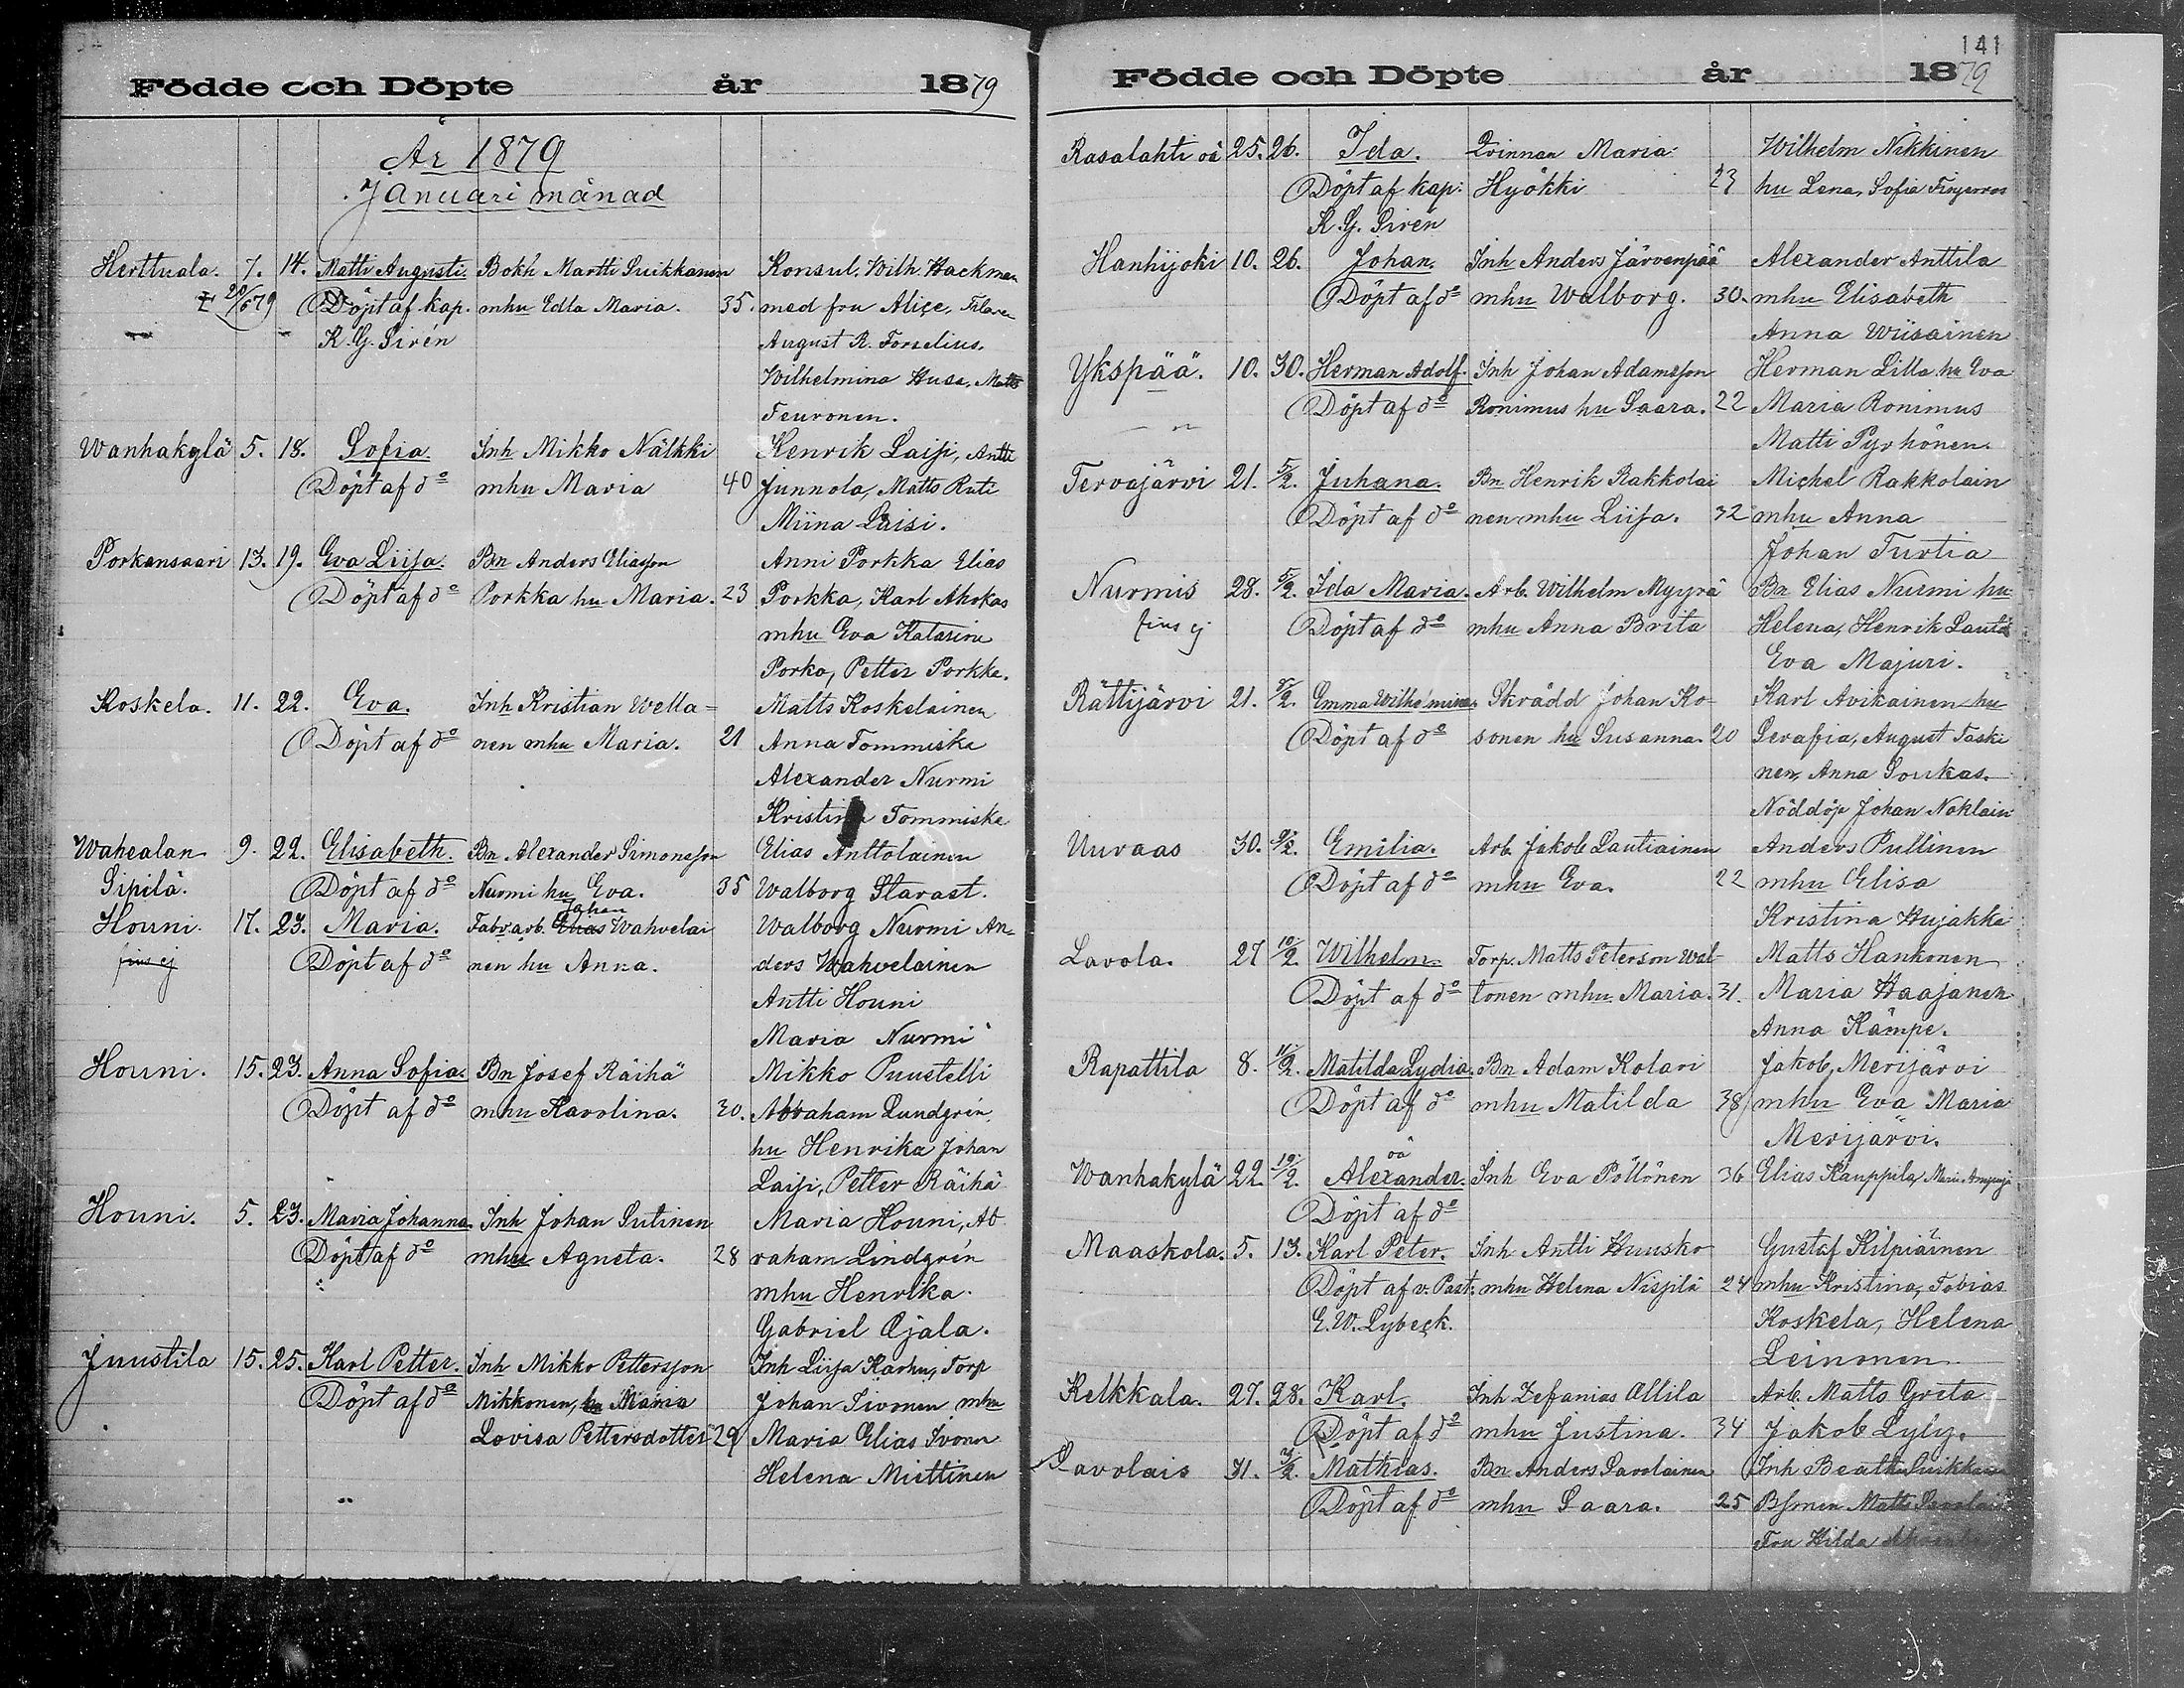 Födde och Döpte år 1879
År 1879
Januari månad
Herttuala. 7. 14. Matti Augusti. Bokh Martti Suikkanen Konsul. Wilh. Hackman
20/5 79 Döpt af kap. mhu Edla Maria. 35. med fru Alice,
K. G. Sirén August R. Forselius.
Wilhelmina Husa, Matts
Teuronen.
Wanhakylä 5. 18. Sofia. Inh Mikko Nälkki Henrik Laisi, Antti
Döpt af do mhu Maria 40 Junnola, Matts Ruti
Miina Laisi.
Porkansaari 13. 19. Eva Liisa. Bn Anders Eliasson Anni Porkka Elias
Döpt af do Porkka hu Maria. 23 Porkka, Karl Ahokas
mhu Eva Katarina
Porka, Petter Porkka.
Koskela. 11. 22. Eva. Inh Kristian Wella= Matts Koskelainen
Döpt af do nen mhu Maria. 21 Anna Tommiska
Alexander Nurmi
Kristina Tommiska
Wahealan 9. 22. Elisabeth. Bn Alexander Simonsson Elias Anttolainen
Sipilä. Döpt af do Nurmi hu Eva. 35 Walborg Starast.
Johan
Houni. 17. 23. Maria. Fabr. arb. Elias Wahvelai Walborg Nurmi An=
fins ej Döpt af do nen hu Anna. ders Wahvelainen
Antti Houni
Maria Nurmi
Houni. 15. 23. Anna Sofia. Bn Josef Räihä Mikko Puustelli
Döpt af do mhu Karolina. 30. Abraham Lundgrén
hu Henrika Johan
Laisi, Petter Räihä
Houni. 5. 23. Maria Johanna. Inh Johan Sutinen Maria Houni, Ab
Döpt af do mhu Agneta. 28 raham Lindgrén
mhu Henrika.
Gabriel Ojala.
Juustila 15. 25. Karl Petter. Inh Mikko Pettersson Inh Liisa Karhu, Torp
Döpt af do Mikkonen, hu Maria Johan Sivonen mhu
Lovisa Pettersdotter 29 Maria Elias Ivonen
Helena Miettinen
141
Födde och Döpte år 1879
Rasalahti oä 25. 26. Ida. Qvinnan Maria Wilhelm Nikkinen
Döpt af kap: Hyökki 23 hu Lena, Sofia
K. G. Sirén
Hanhijoki 10. 26. Johan. Inh Anders Järvenpää Alexander Anttila
Döpt af do mhu Walborg. 30. mhu Elisabeth
Anna Wiisainen
Ykspää. 10. 30. Herman Adolf. Inh Johan Adamsson Herman Lilla hu Eva
Döpt af do Ronimus hu Saara. 22 Maria Ronimus
Matti Pyrhönen.
Tervajärvi 21. 5/2. Juhana. Bn Henrik Rakkolai Michel Rakkolain
Döpt af do nen mhu Liisa. 32 mhu Anna
Johan Turtia
Nurmis 28. 5/2. Ida Maria. Arb. Wilhelm Myyrä Bn Elias Nurmi hu
fins ej Döpt af do mhu Anna Brita Helena, Henrik
Eva Majuri.
Rättijärvi 21. 5/2. Emma Wilhelmina. Skrädd Johan Ko- Karl Avikainen hu
Döpt af do sonen hu Susanna. 20 Serafia, August Taski
nen, Anna Soukas.
Nöddöp Johan Noklain
Uuraas 30. 9/2. Emilia. Arb. Jakob Lautiainen Anders Pullinen
Döpt af do mhu Eva. 22 mhu Elisa
Kristina Hujakka
Lavola. 27 10/2. Wilhelm. Torp. Matts Peterson Wal- Matts Hankonen
Döpt af do tonen mhu Maria. 31. Maria Haajanen
Anna Kämpe.
Rapattila 8. 11/2. Matilda Lydia. Bn Adam Kolari Jakob, Merijärvi
Döpt af do mhu Matilda 38 mhu Eva Maria
Merijärvi.
oä
Wanhakylä 22. 19/2. Alexander. Inh Eva Pöllönen 36 Elias Kauppila, Maria
Döpt af do
Maaskola. 5. 13. Karl Peter. Inh Antti Huusko Gustaf Kilpiäinen
Döpt af v. Past. mhu Helena Nissilä 24 mhu Kristina, Tobias
E. W. Lybeck. Koskela, Helena
Leinonen
Kelkkala. 27. 28. Karl. Inh Zefanias Ollila Arb. Matts Greta
Döpt af do mhu Justina. 34 Jakob Lyly.
Savolais 31. 3/2. Mathias. Bn Anders Savolainen Inh Beata Suikkanen
Döpt af do mhu Saara. 25 Matts Savolain
Fru Hilda